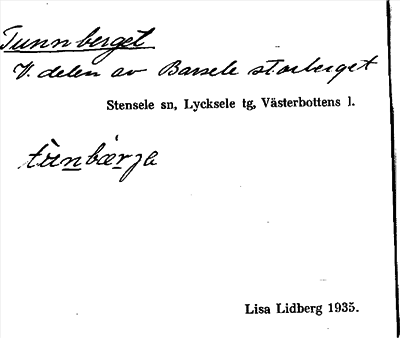 Tunnberget
V. delen av Barsele storberget
Stensele sn, Lycksele tg, Västerbottens l.
tunbærja
Lisa Lidberg 1935.